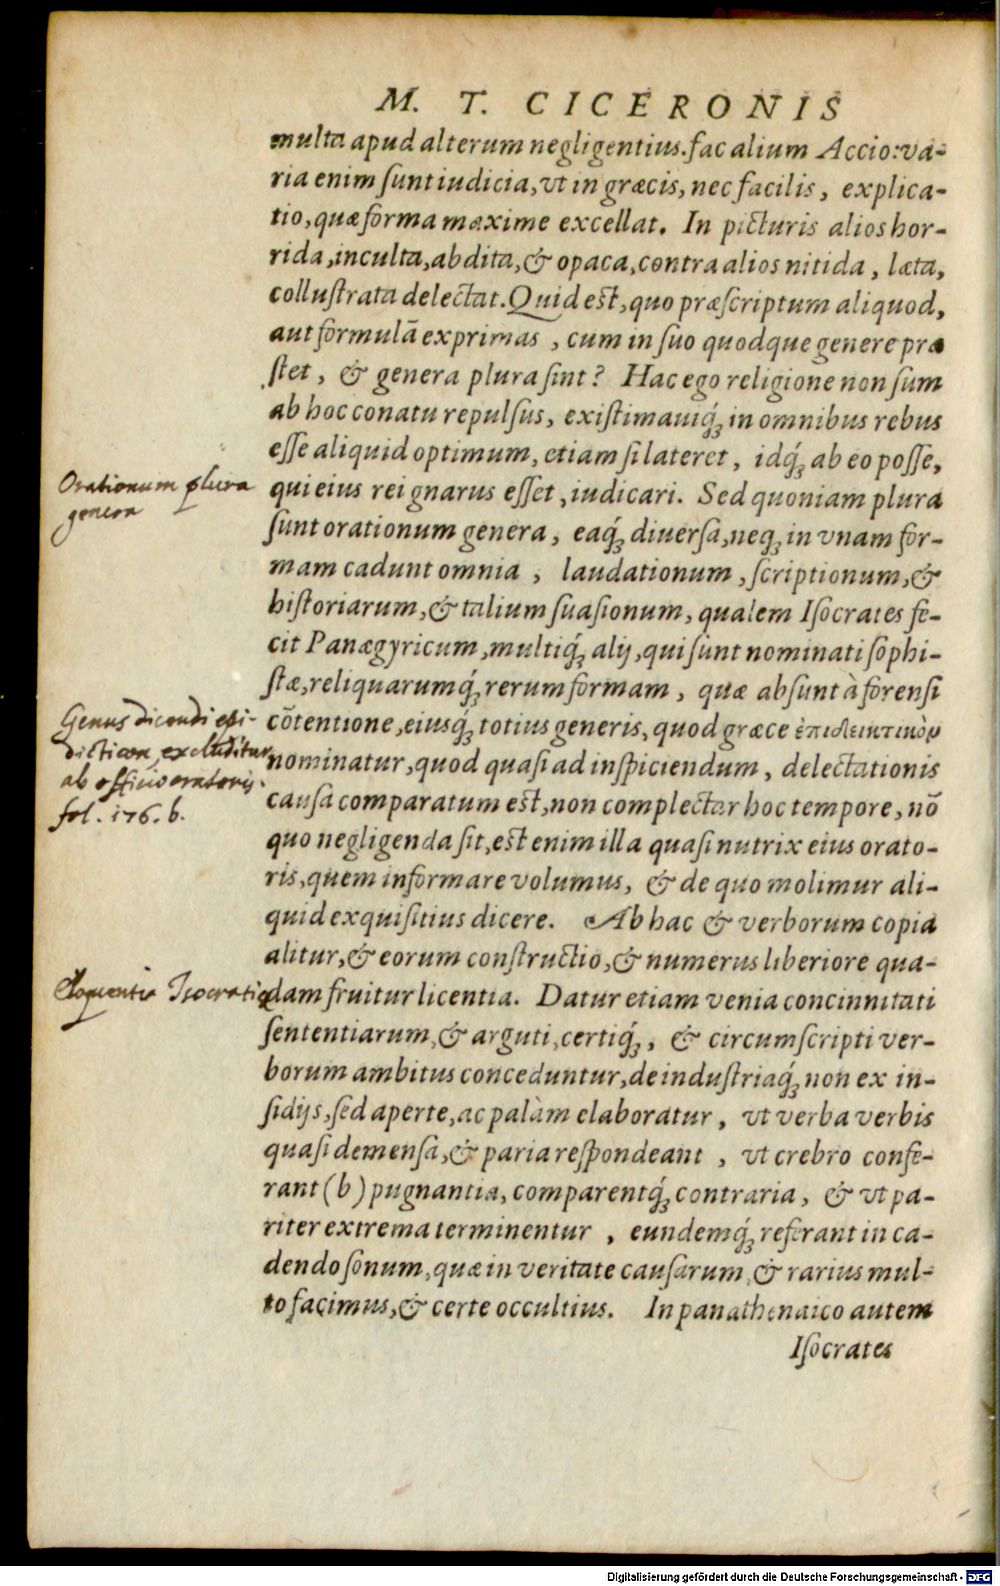 M. T. CICERONIS
multa apud alterum negligentius. fac alium Accio: va-
ria enim ſunt iudicia, vt in græcis, nec facilis, explica-
tio, quæ forma maxime excellat. In picturis alios hor-
rida, inculta, abdita, & opaca, contra alios nitida, læta,
colluſtrata delectat. Quid eſt, quo præſcriptum aliquod,
aut formulā exprimas, cum in ſuo quodque genere præ
ſtet, & genera plura ſint? Hac ego religione non ſum
ab hoc conatu repulſus, exiſtimauiq́ꝫ in omnibus rebus
eſſe aliquid optimum, etiam ſi lateret, idq́ꝫ ab eo poſſe,
qui eius rei gnarus eſſet, iudicari. Sed quoniam plura
Orationum plura
genera
ſunt orationum genera, eaq́ꝫ diuerſa, neqꝫ in vnam for-
mam cadunt omnia, laudationum, ſcriptionum, &
hiſtoriarum, & talium ſuaſionum, qualem Iſocrates fe-
cit Panægyricum, multiq́ꝫ alij, qui ſunt nominati ſophi-
ſtæ, reliquarumq́ꝫ rerum formam, quæ abſunt à forenſi
cōtentione, eiusq́ꝫ totius generis, quod græce ἐπιδεικτικὸν
Genus dicendi epi-
dicticon, excluditur
ab officio oratoris.
fol. 176. b.
nominatur, quod quaſi ad inſpiciendum, delectationis
cauſa comparatum eſt, non complectar hoc tempore, nō
quo negligenda ſit, eſt enim illa quaſi nutrix eius orato-
ris, quem informare volumus, & de quo molimur ali-
quid exquiſitius dicere. Ab hac & verborum copia
alitur, & eorum conſtructio, & numerus liberiore qua-
Eloquentia Isocratica
dam fruitur licentia. Datur etiam venia concinnitati
ſententiarum, & arguti, certiq́ꝫ, & circumſcripti ver-
borum ambitus conceduntur, de induſtriaq́ꝫ non ex in-
ſidijs, ſed aperte, ac palàm elaboratur, vt verba verbis
quaſi demenſa, & paria reſpondeant, vt crebro confe-
rant (b) pugnantia, comparentq́ꝫ contraria, & vt pa-
riter extrema terminentur, eundemq́ꝫ referant in ca-
dendo ſonum, quæ in veritate cauſarum & rarius mul-
to facimus, & certe occultius. In panathenaico autem
Iſocrates
Digitalisierung gefördert durch die Deutsche Forschungsgemeinschaft - DFG